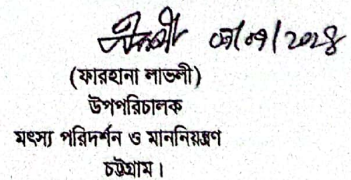 ০৫/০৭/২০২৪
(ফারহানা লাভলী)
উপপরিচালক
মৎস্য পরিদর্শন ও মাননিয়ন্ত্রণ
চট্টগ্রাম।